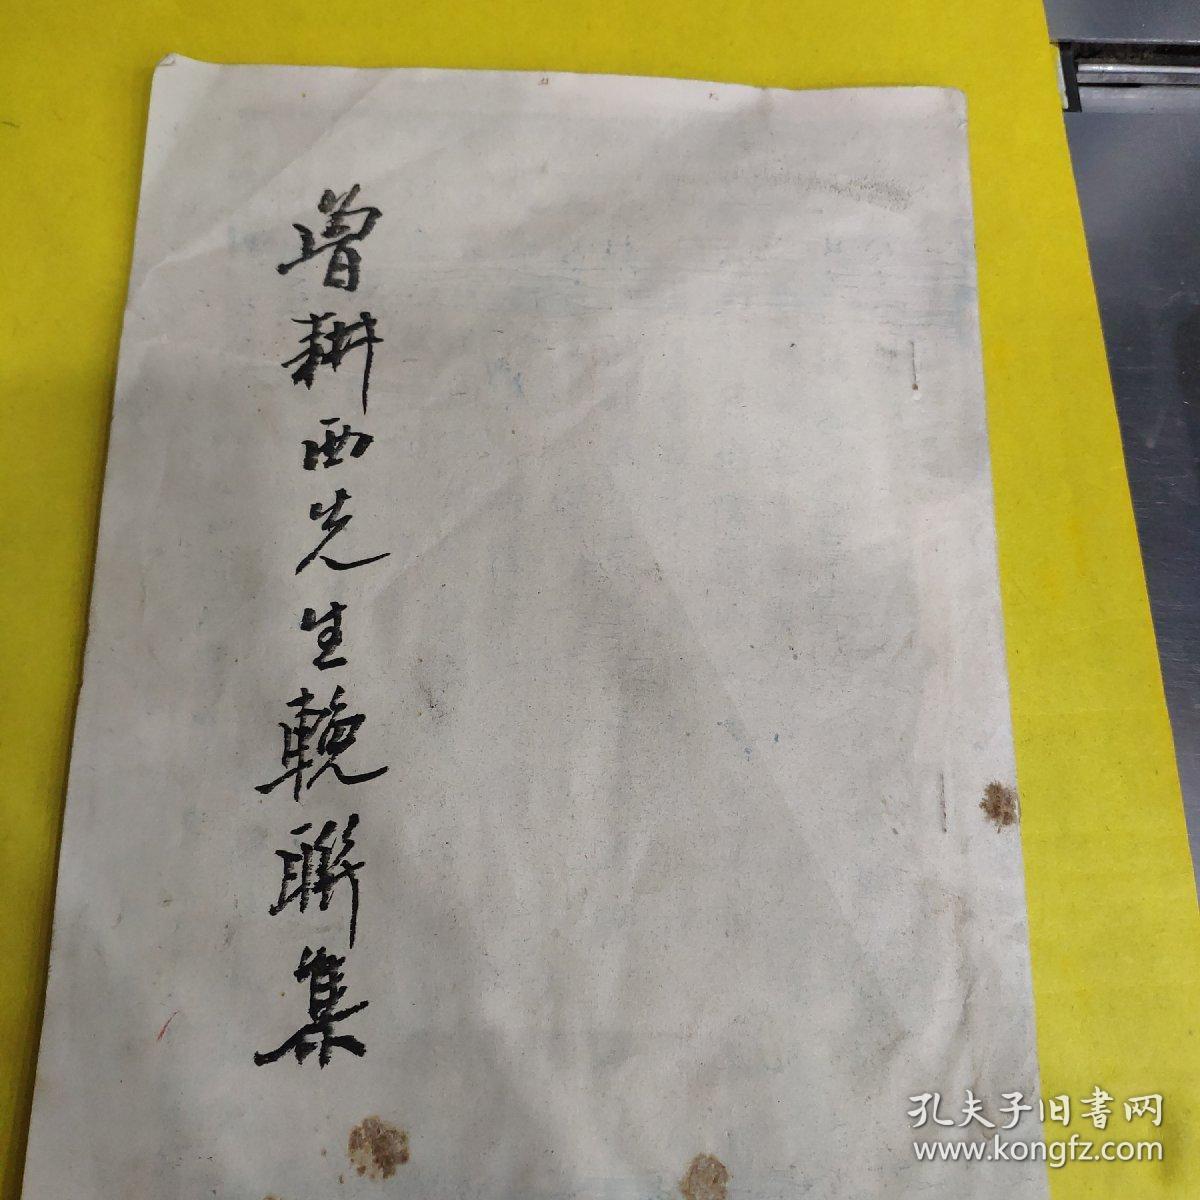 曾耕西先生輓聯集
孔夫子旧書网
www.kongfz.com